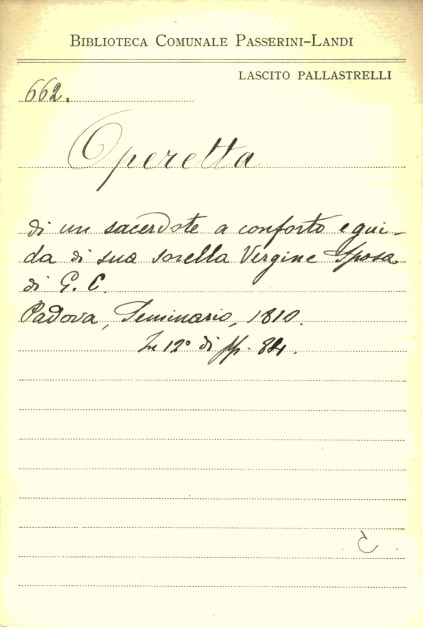 BIBLIOTECA COMUNALE PASSERINI-LANDI
LASCITO PALLASTRELLI
662.
Operetta
di un sacerdote a conforto e gui-
da di sua sorella Vergine Sposa
di G. C.
Padova, Seminario, 1810.
In 12° di pp. 84.